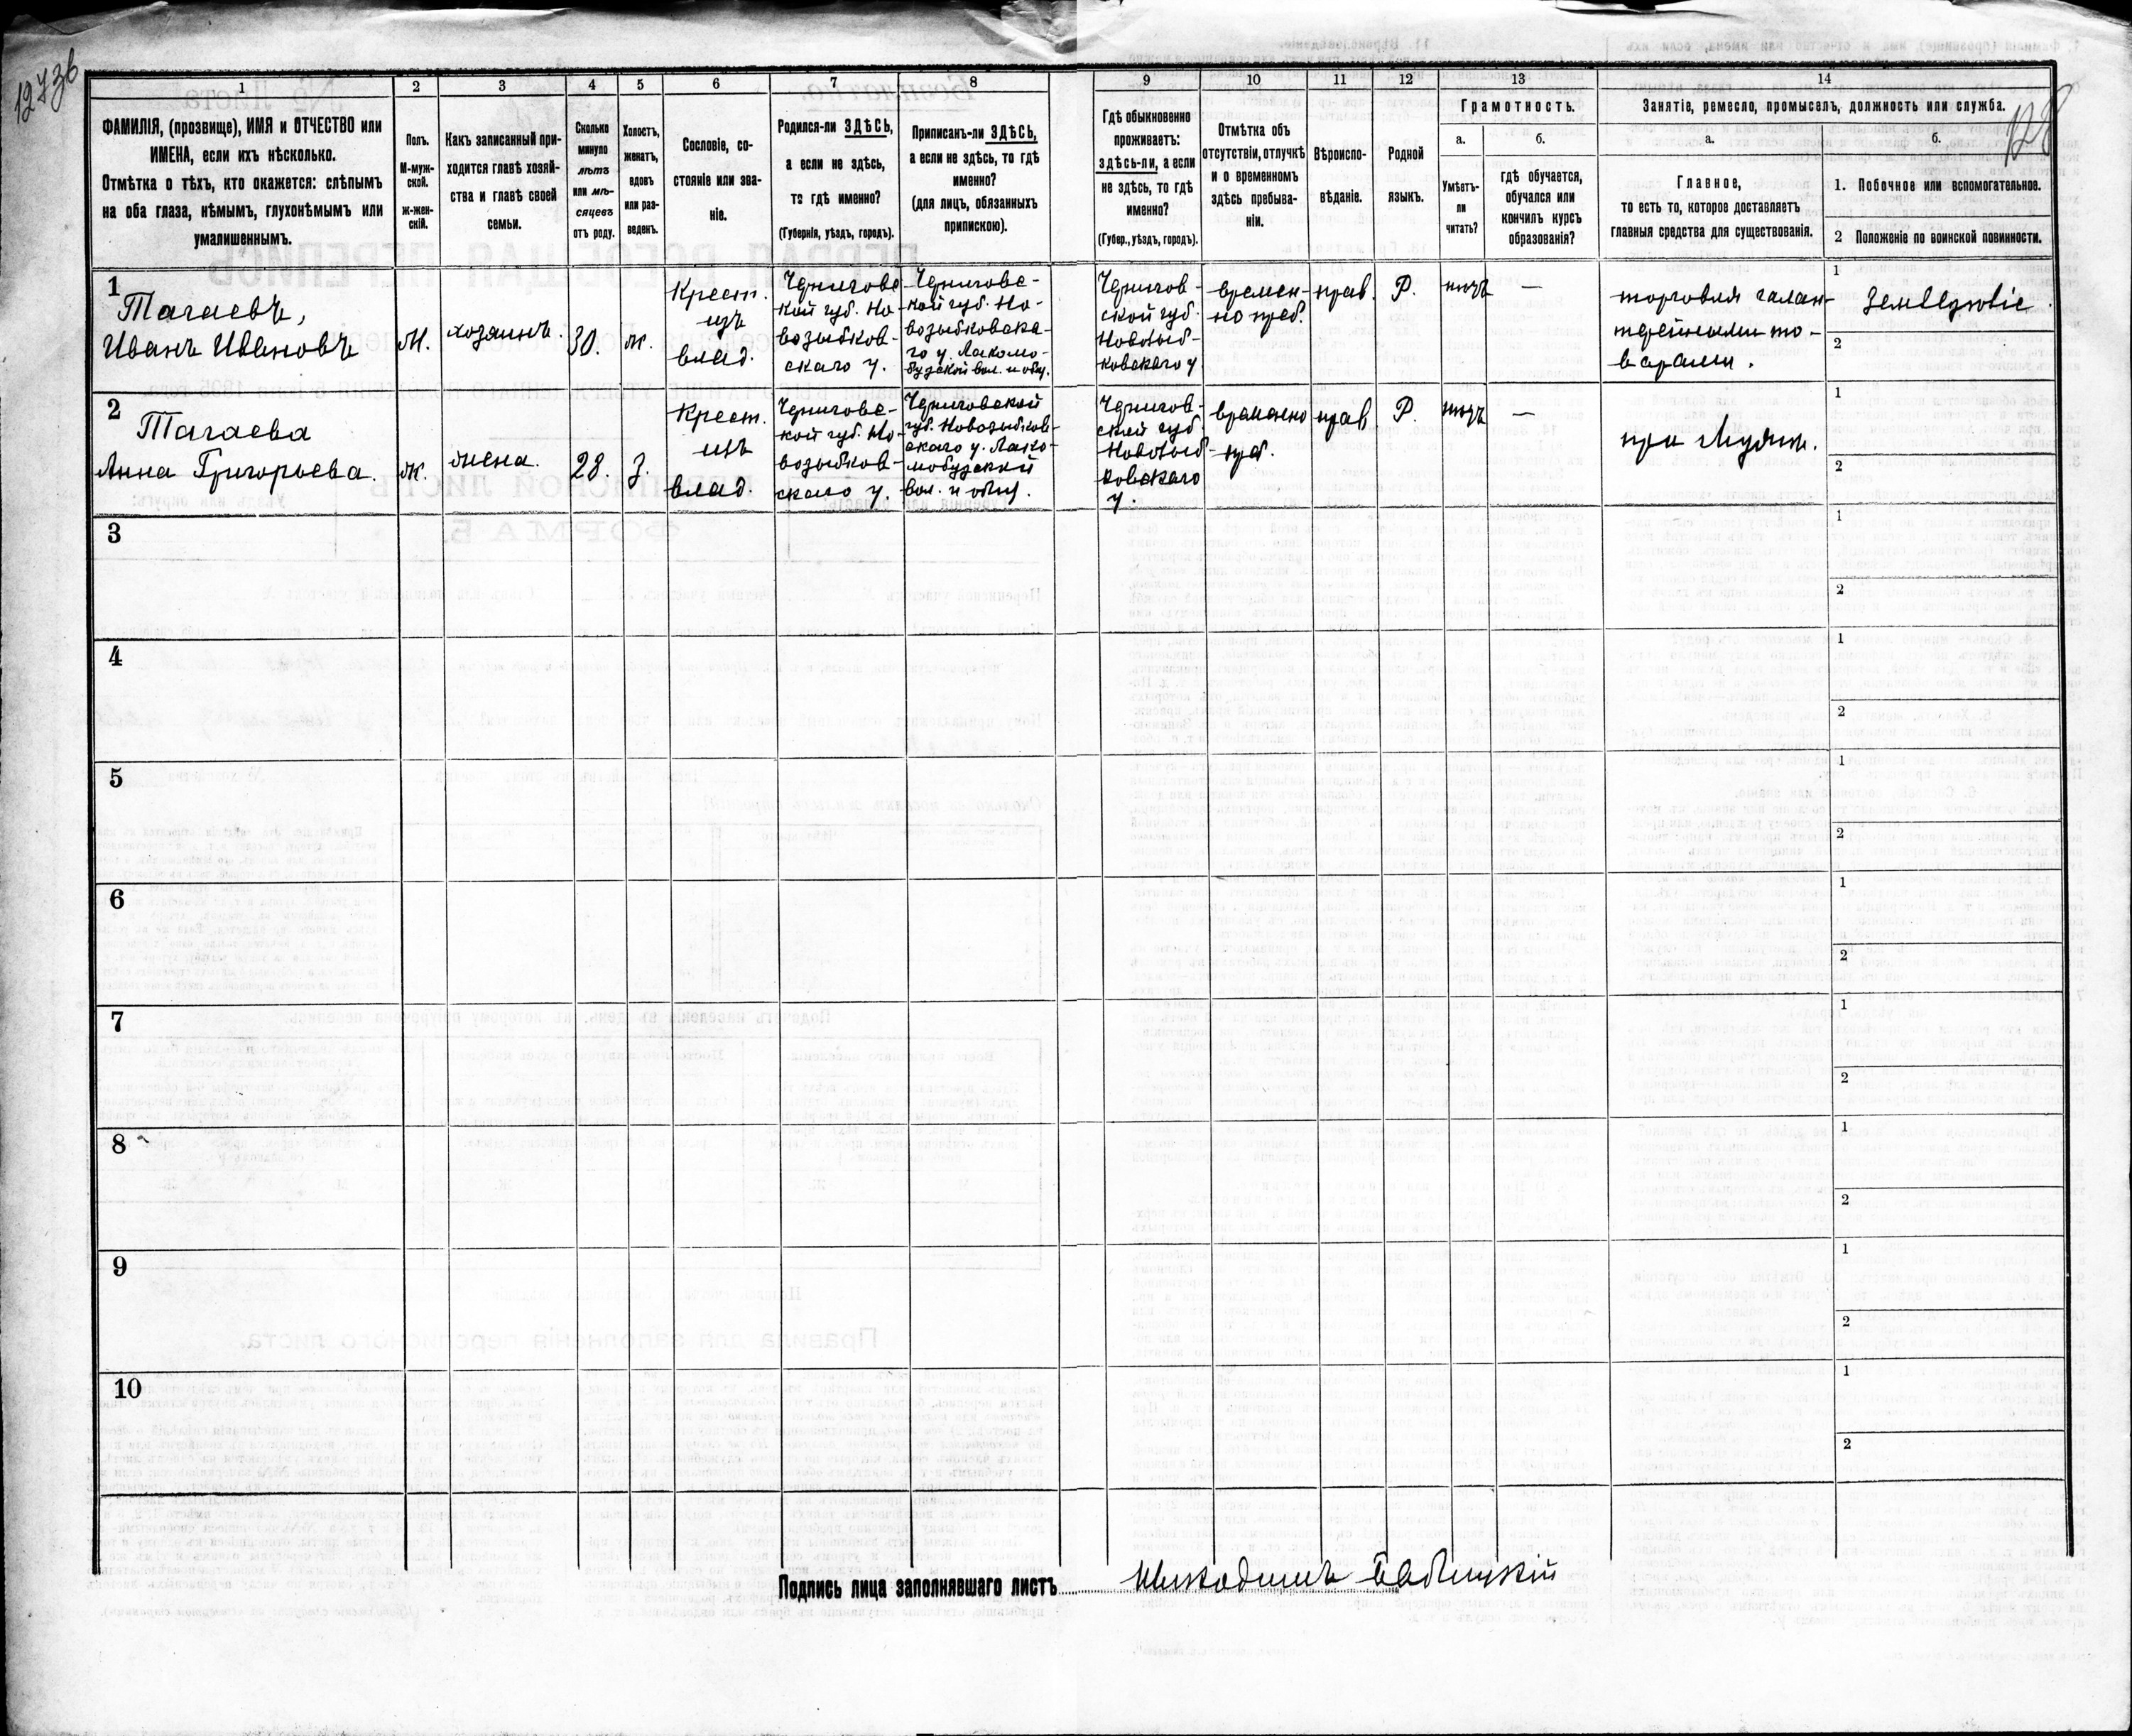 12736
128
1
2
3
4
5
6
7
8
9
10
11
12
13
14
ФАМИЛІЯ, (прозвище), ИМЯ и ОТЧЕСТВО или
ИМЕНА, если ихъ нѣсколько.
Отмѣтка о тѣхъ, кто окажется: слѣпымъ
на оба глаза, нѣмымъ, глухонѣмымъ или
умалишеннымъ.
Полъ.
М-муж-
ской.
ж-жен-
скій.
Какъ записанный при-
ходится главѣ хозяй-
ства и главѣ своей
семьи.
Сколько
минуло
лѣтъ
или мѣ-
сяцевъ
отъ роду.
Холостъ,
женатъ,
вдовъ
или раз-
веденъ.
Сословіе, со-
стояніе или зва-
ніе.
Родился-ли ЗДѢСЬ,
а если не здѣсь,
то гдѣ именно?
(Губернія, уѣздъ, городъ).
Приписанъ-ли ЗДѢСЬ,
а если не здѣсь, то гдѣ
именно?
(для лицъ, обязанныхъ
припискою).
Гдѣ обыкновенно
проживаетъ:
здѣсь-ли, а если
не здѣсь, то гдѣ
именно?
(Губер., уѣздъ, городъ).
Отмѣтка объ
отсутствіи, отлучкѣ
и о временномъ
здѣсь пребыва-
ніи.
Вѣроиспо-
вѣданіе.
Родной
языкъ.
Грамотность.
а.
Умѣетъ-
ли
читать?
б.
гдѣ обучается,
обучался или
кончилъ курсъ
образованія?
Занятіе, ремесло, промыселъ, должность или служба.
а.
Главное,
то есть то, которое доставляетъ
главныя средства для существованія.
б.
1. Побочное или вспомогательное.
2 Положеніе по воинской повинности.
1
Тагаевъ,
Иванъ Ивановъ
М.
хозяинъ.
30.
ж.
Крест.
изъ
влад.
Черниговс
кой губ. Но-
возыбков-
скаго у.
Черниговс-
кой губ. Но-
возыбковска-
го у. Лакомо-
будской вол. и общ.
Чернигов-
ской губ.
Новозыб-
ковскаго у
времен-
но преб.
прав.
Р.
нѣтъ
—
торговля галан-
терейными то-
варами.
1
Земледѣліе.
2
2
Тагаева
Анна Григорьева.
ж.
жена.
28.
З.
Крест.
изъ
влад.
Черниговс-
кой губ. Но-
возыбков-
скаго у.
Черниговской
губ. Новозыбков-
скаго у. Лако-
мобудской
вол. и общ.
Чернигов-
ской губ
Новозыб-
ковскаго
у.
временно
преб.
прав
Р.
нѣтъ
—
при мужѣ.
1
2
3
1
2
4
1
2
5
1
2
6
1
2
7
1
2
8
1
2
9
1
2
10
1
2
Подпись лица заполнявшаго листъ
Никодимъ